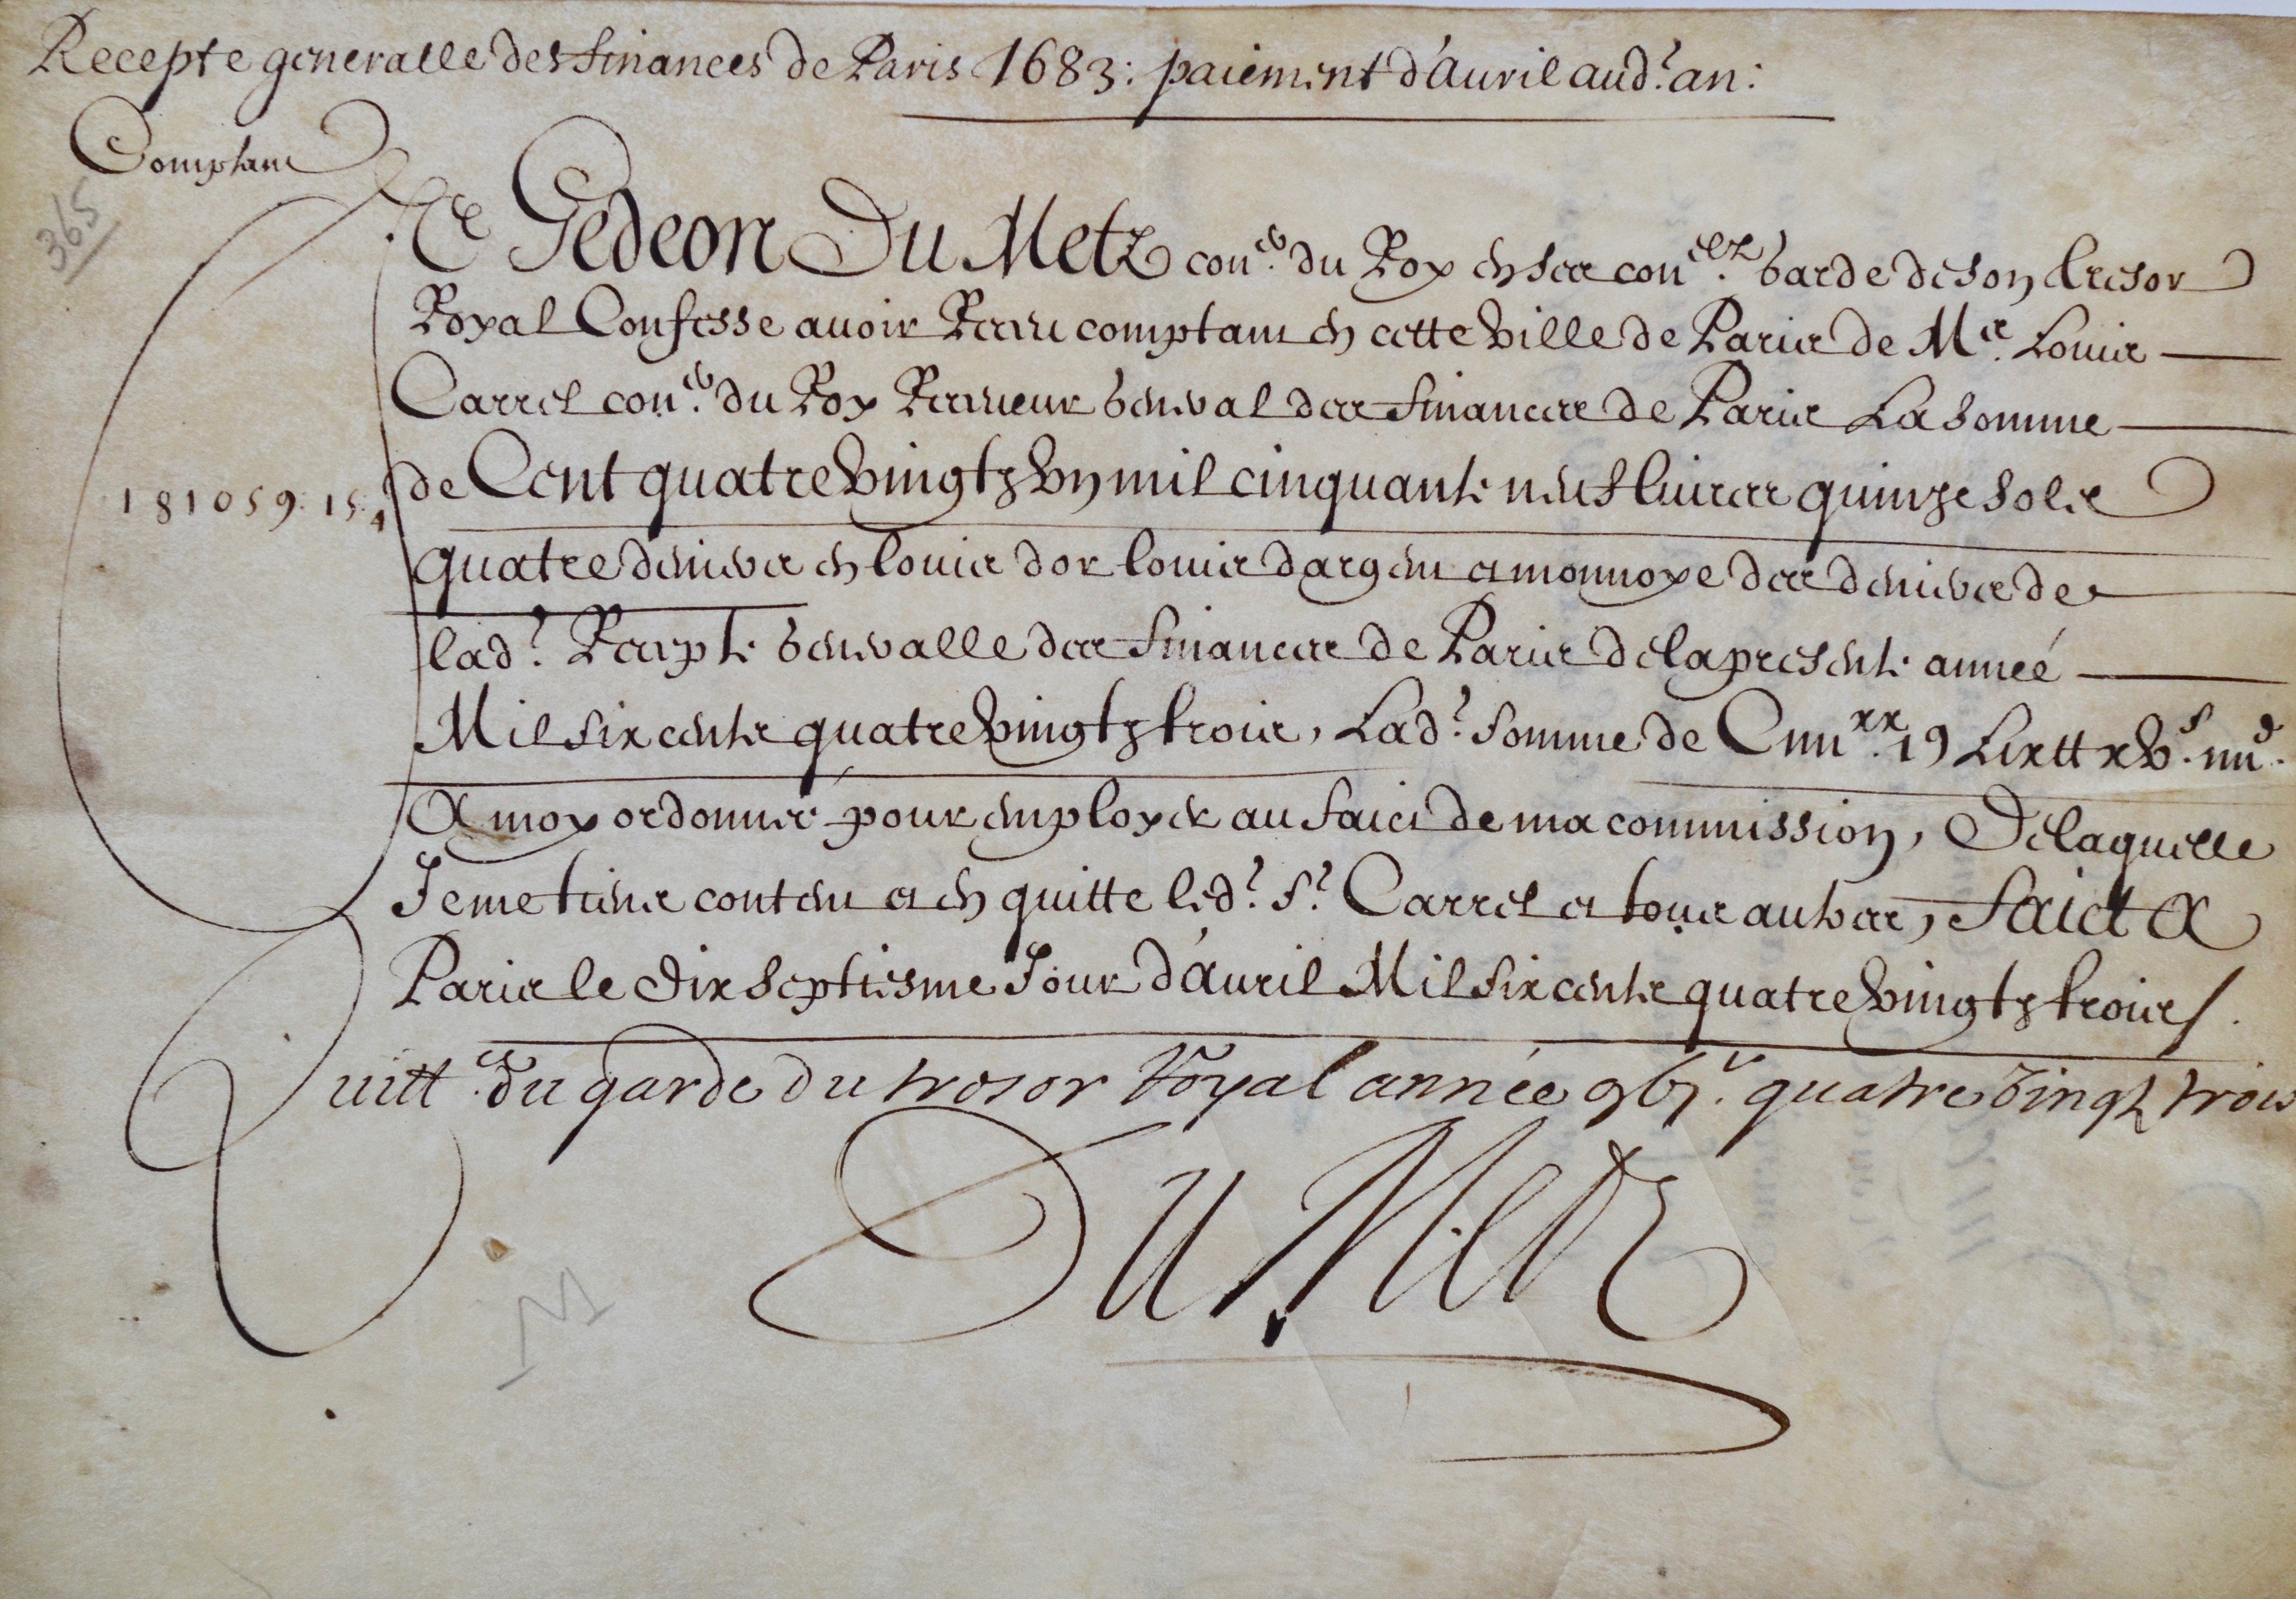 Recepte generalle des finances de Paris 1683: paiement d'auril aud.t an:
Comptant
365
Me Gedeon Du Metz con.er du Roy en ses con.elz garde de son tresor
Royal Confesse auoir Receu comptant en cette ville de Paris de Me. Louis
Carrel con.er du Roy Receueur general des finances de Paris La somme
181059. 15. 4
de Cent quatre vingtz vn mil cinquante neuf liures quinze solz
quatre deniers en louis dor louis dargent et monnoye des deniers de
lad.t Recepte generalle des finances de Paris de la presente anneé
Mil six cents quatre vingtz trois, Lad.t somme de Ciiii.xx i9 Lix tt xv.s iiii.d
A moy ordonneé pour employer au faict de ma commission, De laquelle
Je me tiens content et en quitte led.t s.r Carrel et tous autres, faict a
Paris le dix septiesme Jour d'auril Mil six cents quatre vingtz trois /.
Quitt.ce du garde du tresor Royal année quatre vingtz trois
Du Metz
M